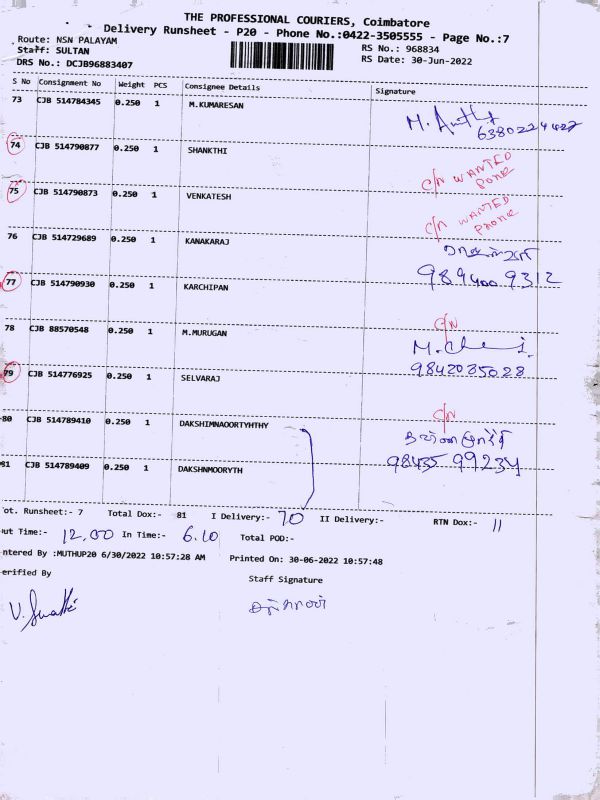 THE PROFESSIONAL COURIERS, Coimbatore
Delivery Runsheet - P20 - Phone No.:0422-3505555 - Page No.:7
Route: NSN PALAYAM RS No.: 968834
Staff: SULTAN RS Date: 30-Jun-2022
DRS No.: DCJB96883407
S No Consignment No Weight PCS Consignee Details Signature
73 CJB 514784345 0.250 1 M.KUMARESAN
74 CJB 514790877 0.250 1 SHANKTHI C/N WANTED PHONE
75 CJB 514790873 0.250 1 VENKATESH C/N WANTED PHONE
76 CJB 514729689 0.250 1 KANAKARAJ
989400 9312
77 CJB 514790930 0.250 1 KARCHIPAN C/N
78 CJB 88570548 0.250 1 M.MURUGAN
9842035028
79 CJB 514776925 0.250 1 SELVARAJ C/N
80 CJB 514789410 0.250 1 DAKSHIMNAOORTYHTHY
98435 99234
81 CJB 514789409 0.250 1 DAKSHNMOORYTH
ot. Runsheet:- 7 Total Dox:- 81 I Delivery:- 70 II Delivery:- RTN Dox:- 11
ut Time:- 12.00 In Time:- 6.10 Total POD:-
ntered By :MUTHUP20 6/30/2022 10:57:28 AM Printed On: 30-06-2022 10:57:48
erified By Staff Signature